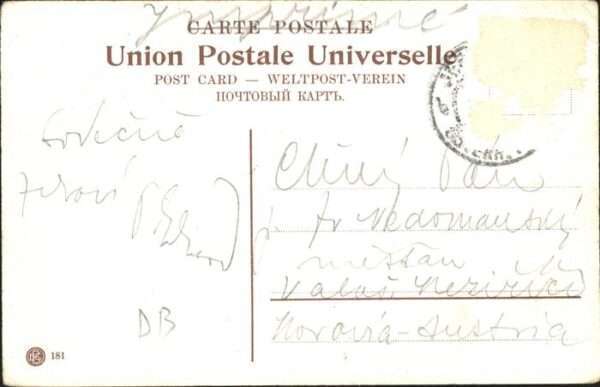 CARTE POSTALE
Imprimé
Union Postale Universelle
POST CARD — WELTPOST-VEREIN
ПОЧТОВЫЙ КАРТЪ.
srdečně
zdraví
DB
Ctěný Pán
Nedomanský
měšťan
Valaš. Meziříčí
Morava-Austria
181